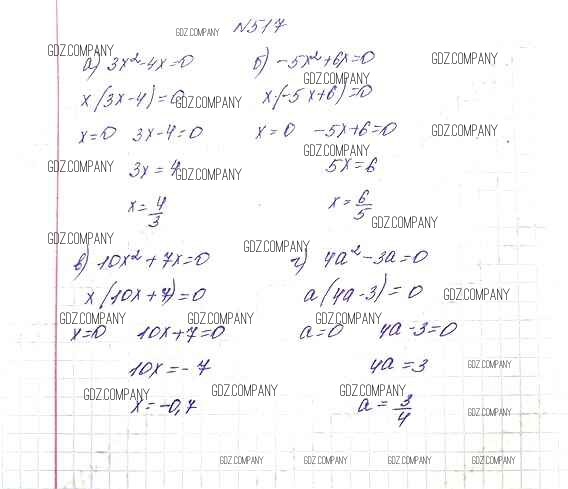 GDZ.COMPANY N517
GDZ.COMPANY GDZ.COMPANY
а) 3x²-4x=0 б) -5x²+6x=0
GDZ.COMPANY
x(3x-4)=0 GDZ.COMPANY x·(-5x+6)=0
x=0 3x-4=0 x=0 -5x+6=0 GDZ.COMPANY
GDZ.COMPANY
GDZ.COMPANY 3x=4 GDZ.COMPANY 5x=6
x=4/3 x=6/5
GDZ.COMPANY
GDZ.COMPANY GDZ.COMPANY
в) 10x²+7x=0 г) 4a²-3a=0
x(10x+7)=0 a(4a-3)=0 GDZ.COMPANY
GDZ.COMPANY GDZ.COMPANY GDZ.COMPANY
x=0 10x+7=0 a=0 4a-3=0
10x=-7 4a=3 GDZ.COMPANY
GDZ.COMPANY GDZ.COMPANY GDZ.COMPANY
x=-0,7 a=3/4 GDZ.COMPANY
GDZ.COMPANY GDZ.COMPANY GDZ.COMPANY GDZ.COMPANY